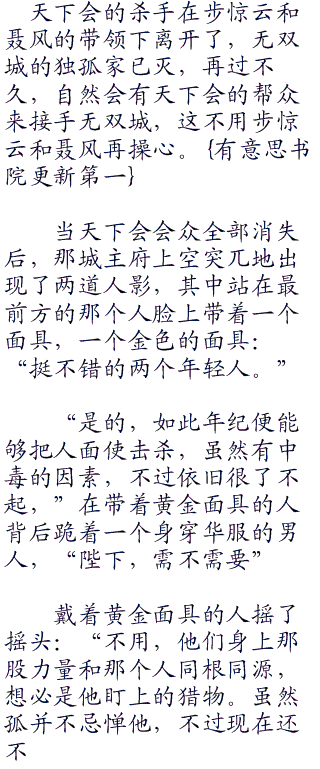 天下会的杀手在步惊云和
聂风的带领下离开了，无双
城的独孤家已灭，再过不
久，自然会有天下会的帮众
来接手无双城，这不用步惊
云和聂风再操心。{有意思书
院更新第一}
当天下会会众全部消失
后，那城主府上空突兀地出
现了两道人影，其中站在最
前方的那个人脸上带着一个
面具，一个金色的面具：
“挺不错的两个年轻人。”
“是的，如此年纪便能
够把人面使击杀，虽然有中
毒的因素，不过依旧很了不
起，”在带着黄金面具的人
背后跪着一个身穿华服的男
人，“陛下，需不需要”
戴着黄金面具的人摇了
摇头：“不用，他们身上那
股力量和那个人同根同源，
想必是他盯上的猎物。虽然
孤并不忌惮他，不过现在还
不